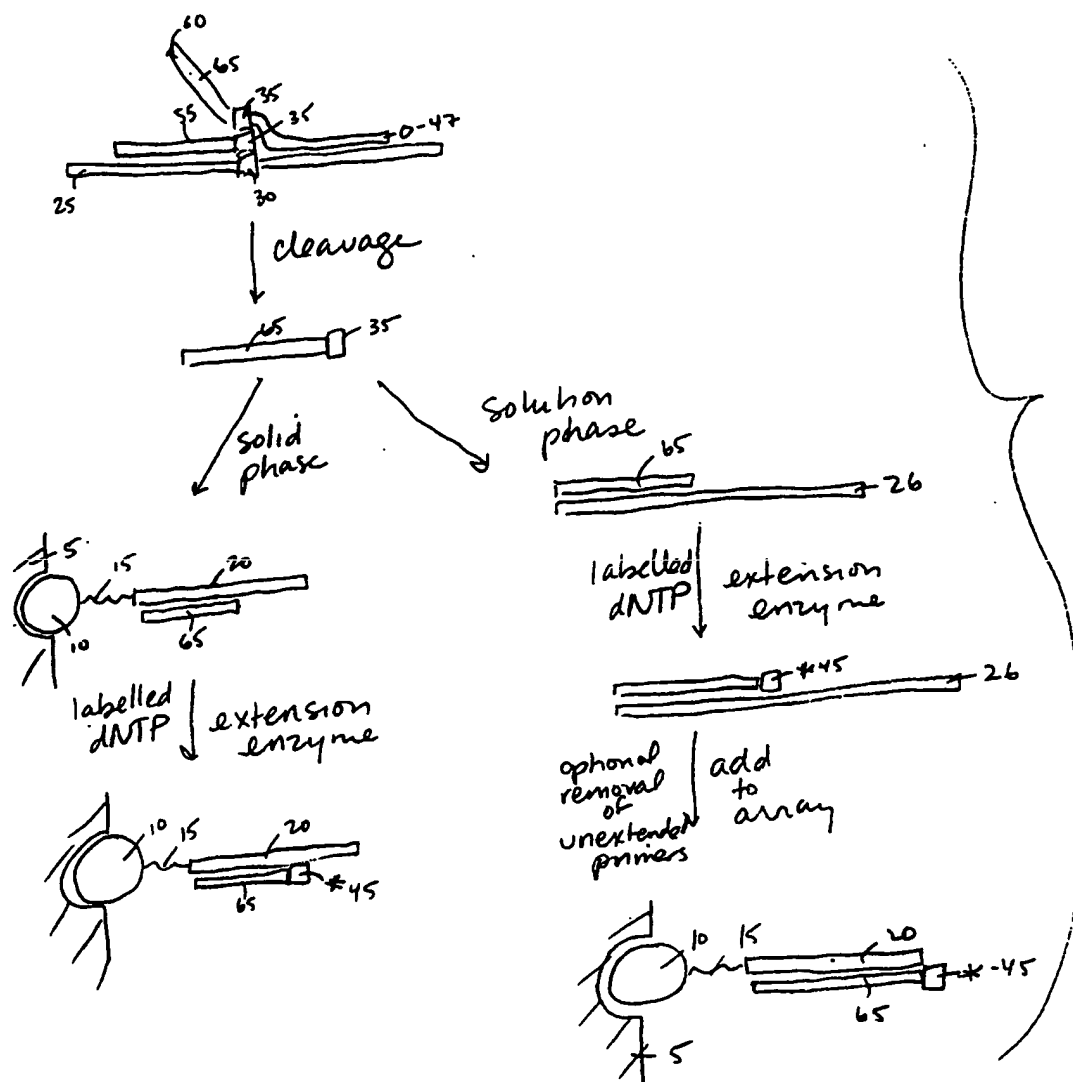 60
65
35
55
35
0-47
25
30
cleavage
65
35
solid
phase
solution
phase
65
26
5
15
20
10
65
labelled
dNTP
extension
enzyme
labelled
dNTP
extension
enzyme
*45
26
10
15
20
*45
65
optional
removal
of
unextended
primers
add
to
array
10
15
20
*-45
65
5